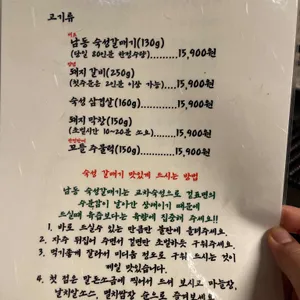 고기류
남동 숙성갈매기(130g)
(당일 80인분 한정수량) ......15,900원
돼지 갈비(250g)
(첫주문은 2인분 이상 가능)......15,900원
숙성 삼겹살(160g)............15,900원
돼지 막창(150g)
(초벌시간 10~20분 소요)......15,900원
모듬 수불력(150g)............15,900원
숙성 갈매기 맛있게 드시는 방법
남동 숙성갈매기는 교차숙성으로 겉표면의
수분감이 날아간 상태이기 때문에
드실때 육즙보다는 육향에 집중해 주세요!!
1. 바로 드실수 있는 만큼만 불판에 올려주세요.
2. 자주 뒤집어 주면서 겉면만 초벌하듯 구워주세요.
3. 먹기좋게 잘라서 미디움 정도로 구워 드시는 것이
제일 맛있습니다.
4. 첫 점은 말돈소금에 찍어서 드셔 보시고 마늘장,
날치알소스, 멸치쌈장 순으로 즐겨보세요.